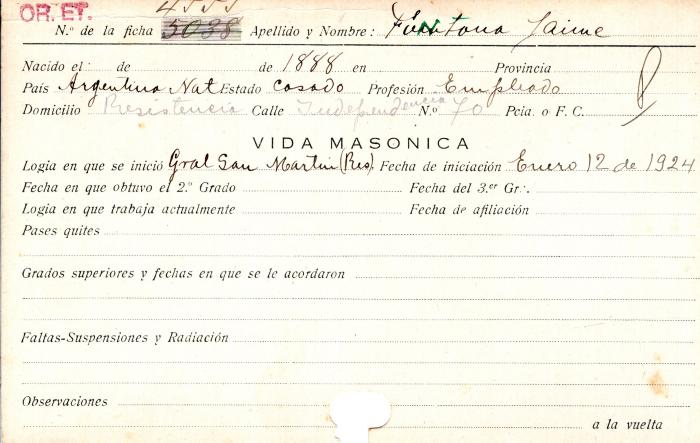 OR. ET.
4555
N.º de la ficha 5038 Apellido y Nombre: Fontana Jaime
Nacido el: de de 1888 en Provincia
País Argentina Nat Estado casado Profesión Empleado
Domicilio Resistencia Calle Independencia N.º 70 Pcia. o F. C.
VIDA MASONICA
Logia en que se inició Gral San Martin (Res). Fecha de iniciación Enero 12 de 1924
Fecha en que obtuvo el 2.º Grado Fecha del 3.er Gr∴.
Logia en que trabaja actualmente Fecha de afiliación
Pases quites
Grados superiores y fechas en que se le acordaron
Faltas-Suspensiones y Radiación
Observaciones
a la vuelta